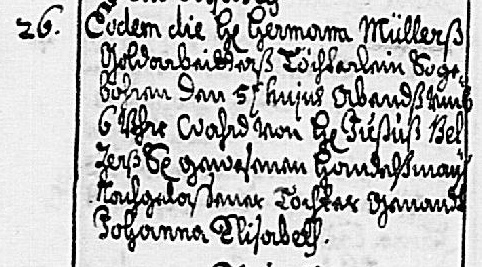 26. Eodem die H. Hermann Müllerß
Goldarbeiterß Töchterlein So ge-
bohren den 5t hujus Abendß umb
6 Uhr ward von H. Justuß Bel
zerß Se. gewesenen Handelßmanß
Nachgelaßener Tochter Genandt
Johanna Elisabeth.